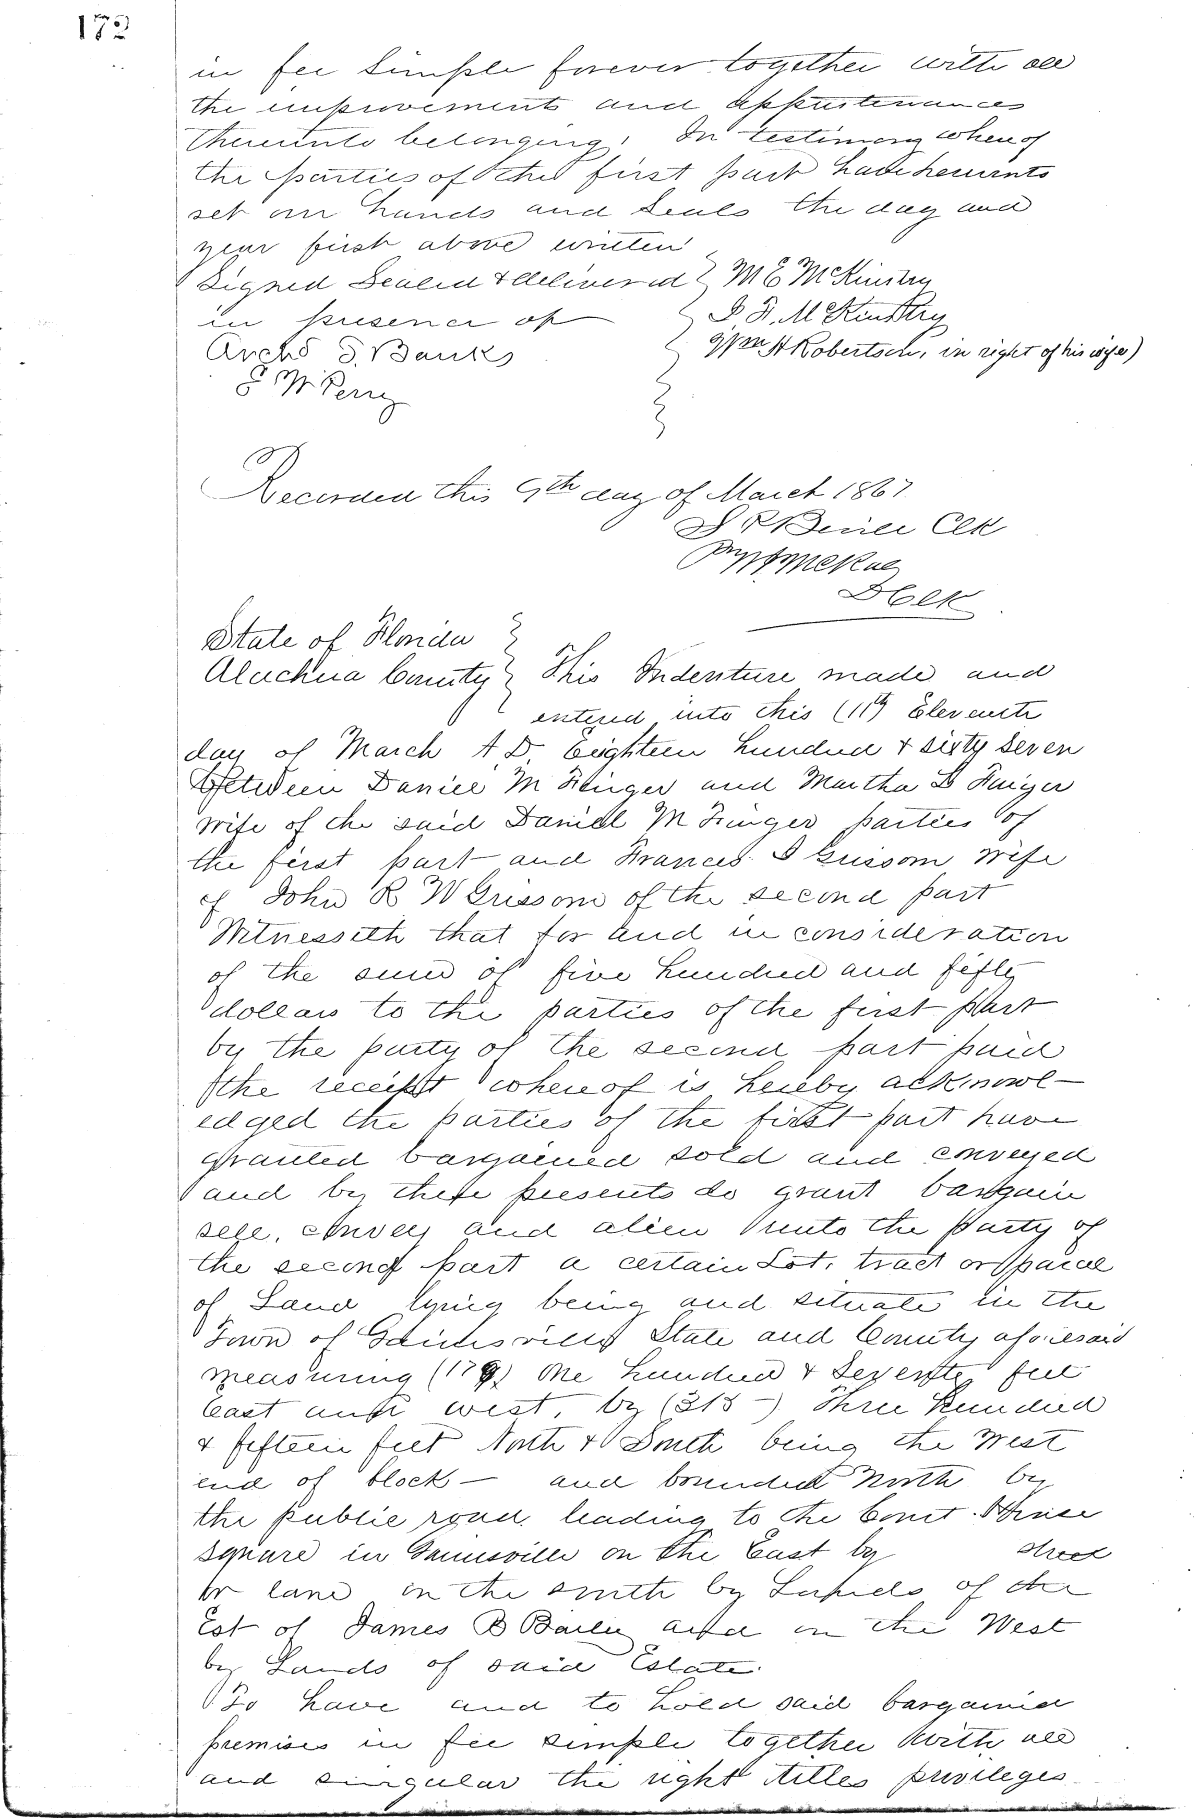 172
in fee simple forever together with all
the improvements and appurtenances
thereunto belonging. In testimony whereof
the parties of the first part have hereunto
set our hands and seals the day and
year first above written
Signed Sealed & delivered M E McKinstry
in presence of J. F. McKinstry
Archd S. Banks Wm H Robertson, in right of his wife)
E W Perry
Recorded this 9th day of March 1867
Clk
DClk
State of Florida
Alachua County This Indenture made and
entered into this (11th) Eleventh
day of March A.D. Eighteen hundred & sixty seven
between Daniel M Finger and Martha D Finger
wife of the said Daniel M Finger parties of
the first part and Frances I Grissom wife
of John R W Grissom of the second part
Witnesseth that for and in consideration
of the sum of five hundred and fifty
dollars to the parties of the first part
by the party of the second part paid
the receipt whereof is hereby acknowl-
edged the parties of the first part have
granted bargained sold and conveyed
and by these presents do grant bargain
sell, convey and alien unto the party of
the second part a certain Lot, tract or parcel
of Land lying being and situate in the
Town of Gainesville State and County aforesaid
measuring (170) One hundred & Seventy feet
East and west, by (315-) Three hundred
& fifteen feet North & South being the West
end of block - and bounded North by
the public road leading to the Court House
square in Gainesville on the East by street
or lane on the south by Lands of the
Est of James B Bailey and on the West
by Lands of said Estate.
To have and to hold said bargained
premises in fee simple together with all
and singular the right titles privileges